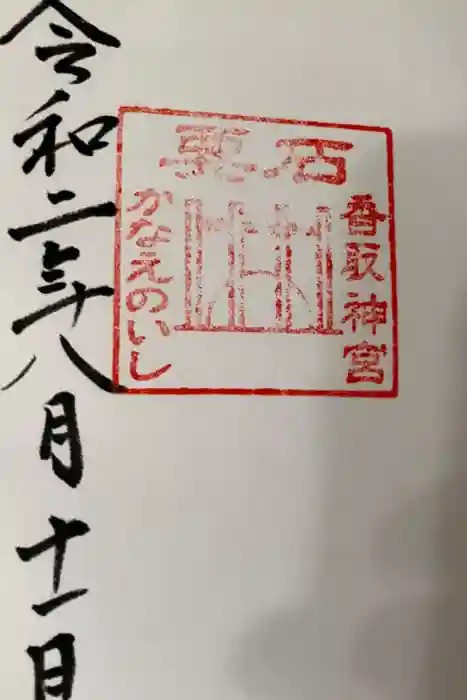 香取神宮
要石
かなえのいし
令和二年八月十一日